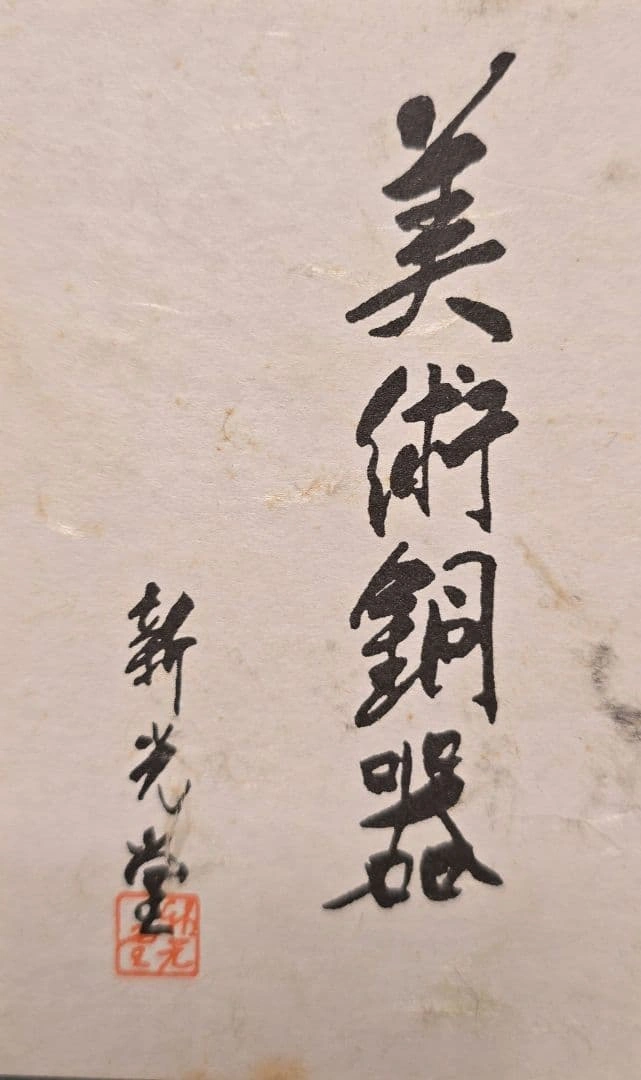 美術銅器
新光堂
新光堂